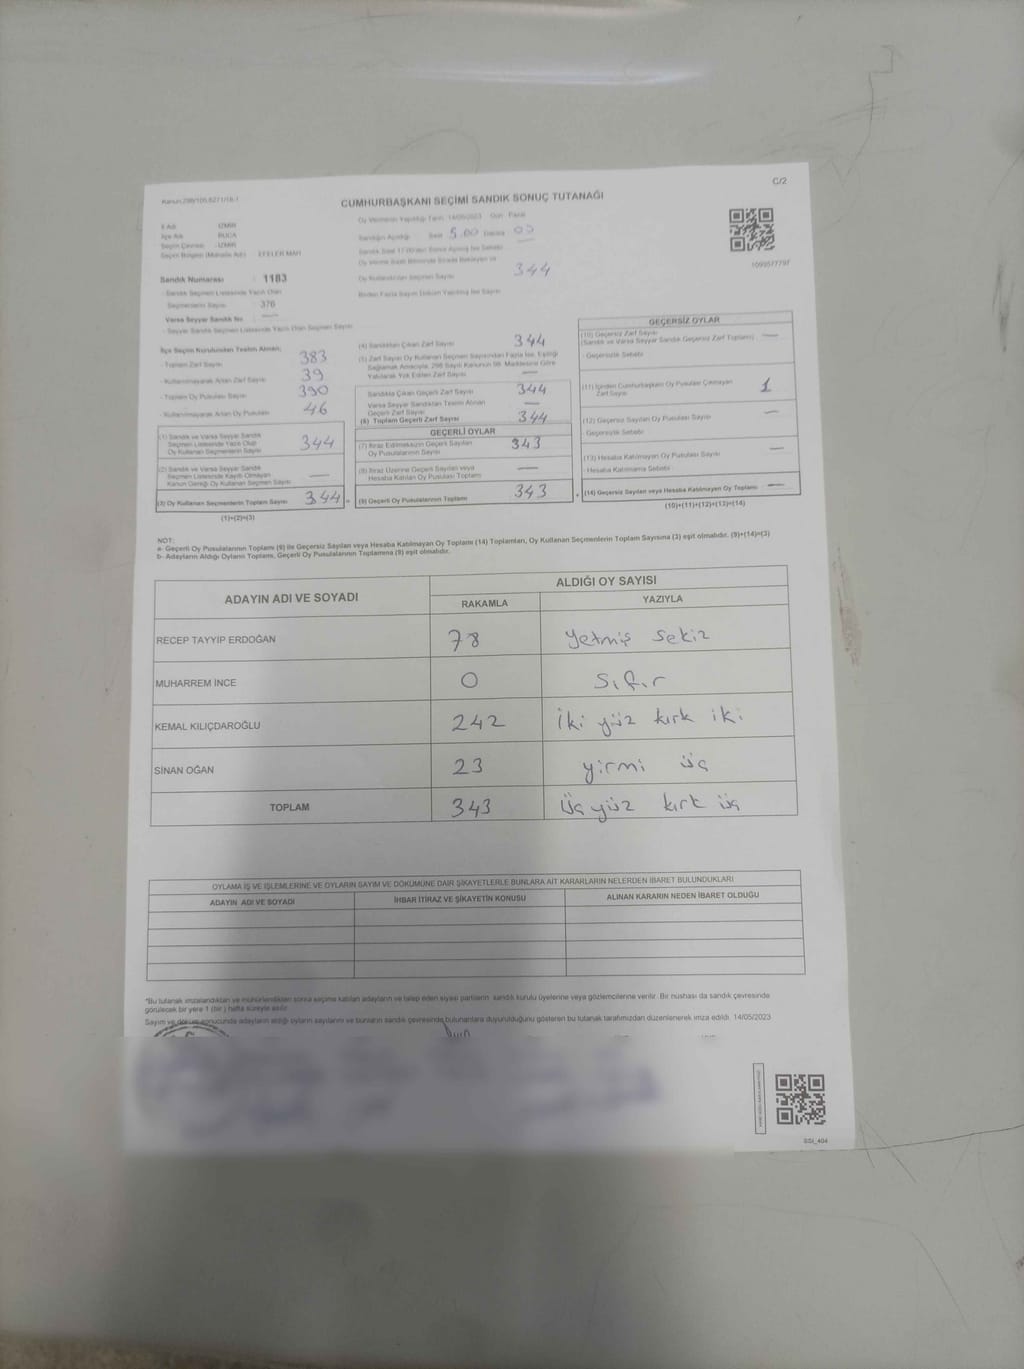 C/2
Kanun:298/105,6271/18-1
CUMHURBAŞKANI SEÇİMİ SANDIK SONUÇ TUTANAĞI
İl Adı : İZMİR
İlçe Adı : BUCA
Seçim Çevresi : İZMİR
Seçim Bölgesi (Mahalle Adı) : EFELER MAH
Oy Vermenin Yapıldığı Tarih: 14/05/2023 Gün: Pazar
Sandığın Açıldığı Saat 5.00 Dakika
1099577797
Sandık Numarası : 1183
- Sandık Seçmen Listesinde Yazılı Olan
Seçmenlerin Sayısı : 376
Varsa Seyyar Sandık No : —
- Seyyar Sandık Seçmen Listesinde Yazılı Olan Seçmen Sayısı
Oy Kullandırılan Seçmen Sayısı 344
Birden Fazla Sayım Döküm Yapılmış İse Sayısı
İlçe Seçim Kurulundan Teslim Alınan;
- Toplam Zarf Sayısı : 383
- Kullanılmayarak Artan Zarf Sayısı : 39
- Toplam Oy Pusulası Sayısı : 390
- Kullanılmayarak Artan Oy Pusulası : 46
(1) Sandık ve Varsa Seyyar Sandık
Seçmen Listesinde Yazılı Olup
Oy Kullanan Seçmenlerin Sayısı 344
(2) Sandık ve Varsa Seyyar Sandık
Seçmen Listesinde Kayıtlı Olmayan
Kanun Gereği Oy Kullanan Seçmen Sayısı —
(3) Oy Kullanan Seçmenlerin Toplam Sayısı 344
(1)+(2)=(3)
(4) Sandıktan Çıkan Zarf Sayısı 344
Zarf Sayısı Oy Kullanan Seçmen Sayısından Fazla İse, Eşitliği
Sağlamak Amacıyla, 298 Sayılı Kanunun 98. Maddesine Göre
Yakılarak Yok Edilen Zarf Sayısı —
Sandıkta Çıkan Geçerli Zarf Sayısı 344
Varsa Seyyar Sandıktan Teslim Alınan
Geçerli Zarf Sayısı —
(6) Toplam Geçerli Zarf Sayısı 344
GEÇERLİ OYLAR
(7) İtiraz Edilmeksizin Geçerli Sayılan
Oy Pusulalarının Sayısı 343
(8) İtiraz Üzerine Geçerli Sayılan veya
Hesaba Katılan Oy Pusulası Toplamı —
(9) Geçerli Oy Pusulalarının Toplamı 343
GEÇERSİZ OYLAR
(10) Geçersiz Zarf Sayısı
(Sandık ve Varsa Seyyar Sandık Geçersiz Zarf Toplamı) —
- Geçersizlik Sebebi:
(11) İçinden Cumhurbaşkanı Oy Pusulası Çıkmayan
Zarf Sayısı 1
(12) Geçersiz Sayılan Oy Pusulası Sayısı —
Geçersizlik Sebebi:
(13) Hesaba Katılmayan Oy Pusulası Sayısı —
- Hesaba Katılmama Sebebi :
(14) Geçersiz Sayılan veya Hesaba Katılmayan Oy Toplamı —
(10)+(11)+(12)+(13)=(14)
NOT:
a- Geçerli Oy Pusulalarının Toplamı (9) ile Geçersiz Sayılan veya Hesaba Katılmayan Oy Toplamı (14) Toplamları, Oy Kullanan Seçmenlerin Toplam Sayısına (3) eşit olmalıdır. (9)+(14)=(3)
b- Adayların Aldığı Oyların Toplamı, Geçerli Oy Pusulalarının Toplamına (9) eşit olmalıdır.
ADAYIN ADI VE SOYADI
ALDIĞI OY SAYISI
RAKAMLA YAZIYLA
RECEP TAYYİP ERDOĞAN 78 Yetmiş sekiz
MUHARREM İNCE 0 Sıfır
KEMAL KILIÇDAROĞLU 242 İki yüz kırk iki
SİNAN OĞAN 23 yirmi üç
TOPLAM 343 Üç yüz kırk üç
OYLAMA İŞ VE İŞLEMLERİNE VE OYLARIN SAYIM VE DÖKÜMÜNE DAİR ŞİKAYETLERLE BUNLARA AİT KARARLARIN NELERDEN İBARET BULUNDUKLARI
ADAYIN ADI VE SOYADI İHBAR İTİRAZ VE ŞİKAYETİN KONUSU ALINAN KARARIN NEDEN İBARET OLDUĞU
*Bu tutanak imzalandıktan ve mühürlendikten sonra seçime katılan adayların ve talep eden siyasi partilerin sandık kurulu üyelerine veya gözlemcilerine verilir. Bir nüshası da sandık çevresinde
görülecek bir yere 1 (bir) hafta süreyle asılır.
Sayım ve döküm sonucunda adayların aldığı oyların sayılarını ve bunların sandık çevresinde bulunanlara duyurulduğunu gösteren bu tutanak tarafımızdan düzenlenerek imza edildi. 14/05/2023
SSI_404